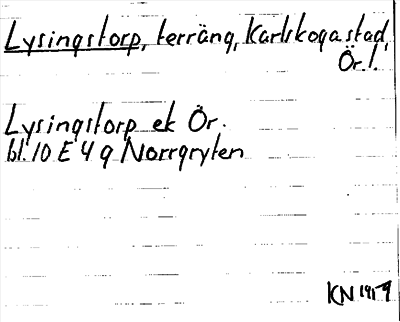 Lysingstorp, terräng, Karlskoga stad,
Ör. l.
Lysingstorp ek Ör.
bl. 10 E 4 g Norrgryten
KN 1917